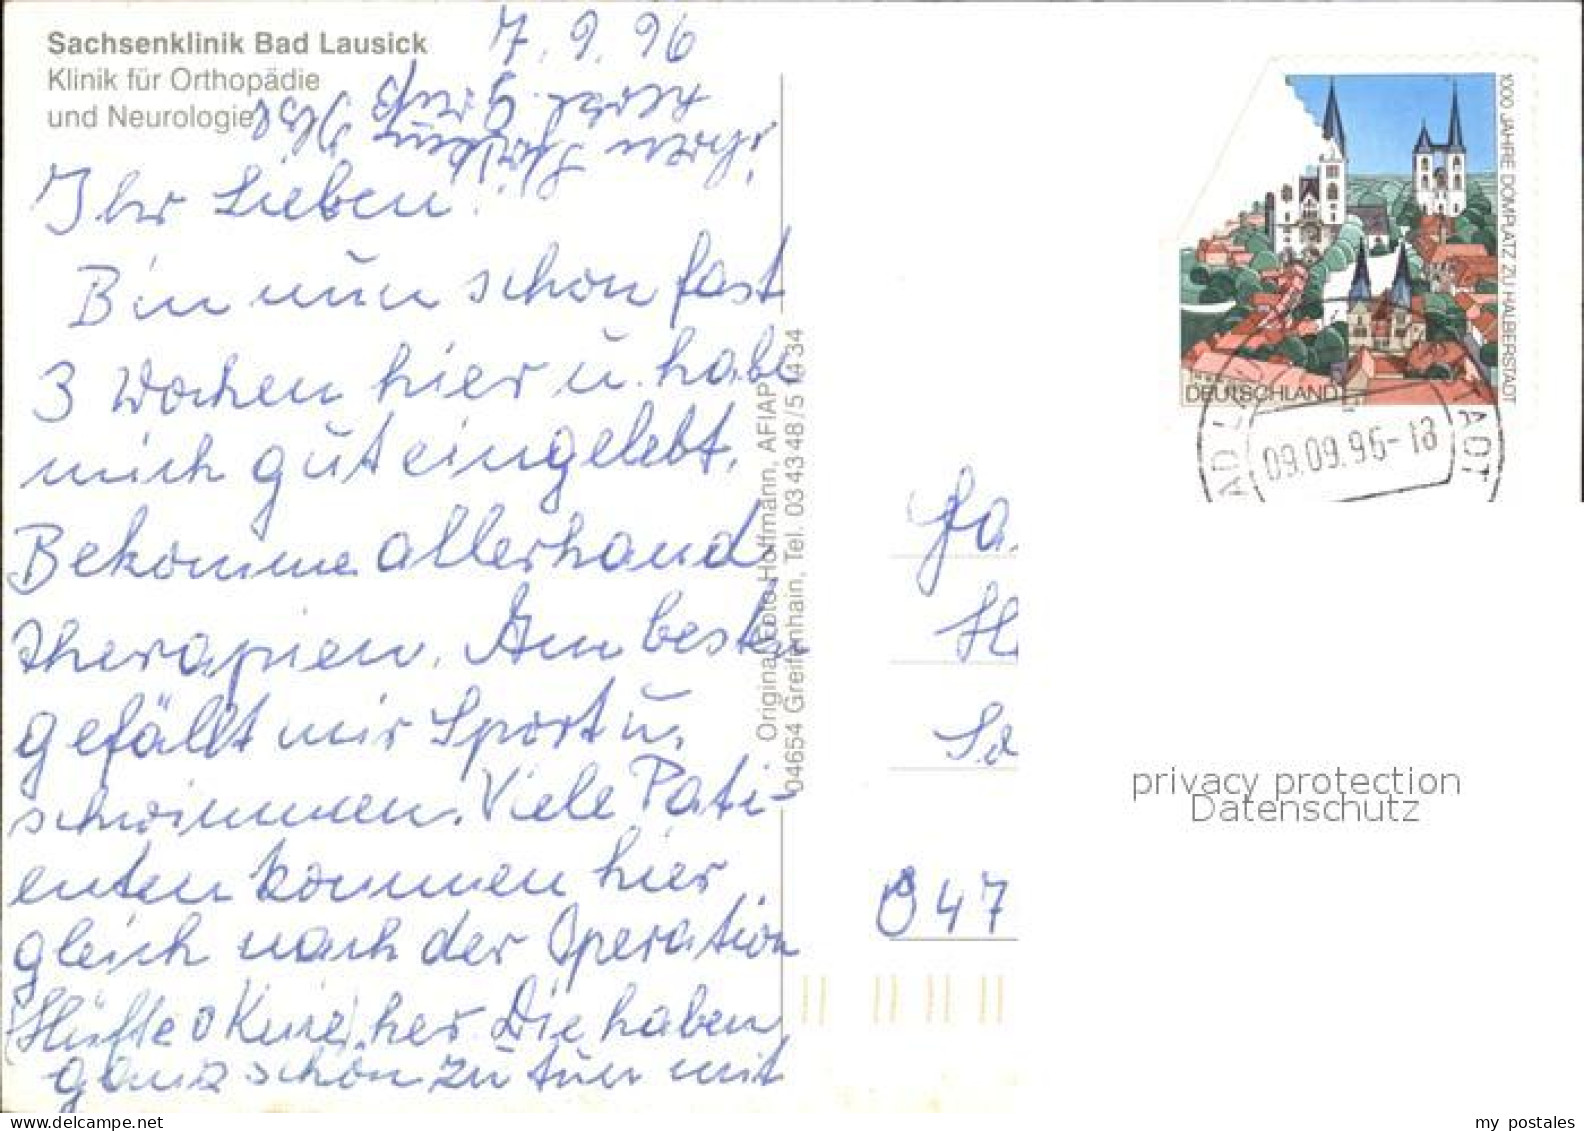 Sachsenklinik Bad Lausick
Klinik für Orthopädie
und Neurologie
7.9.96
Ihr Lieben!
Bin nun schon fast
3 Wochen hier u. habe
mich gut eingelebt.
Bekomme allerhand
Therapien. Am besten
gefällt mir Sport u.
schwimmen. Viele Pati-
enten kommen hier
gleich nach der Operation
Hüfte o Knie, her. Die haben
ganz schön zu tun mit
ihren
Herzl. Gruß
Original Foto Hoffmann, AFIAP
04654 Greifenhain, Tel. 03 43 48/5 14 34
1000 JAHRE DOMPLATZ ZU HALBERSTADT
DEUTSCHLAND
09.09.96-18
047
privacy protection
Datenschutz
my postales